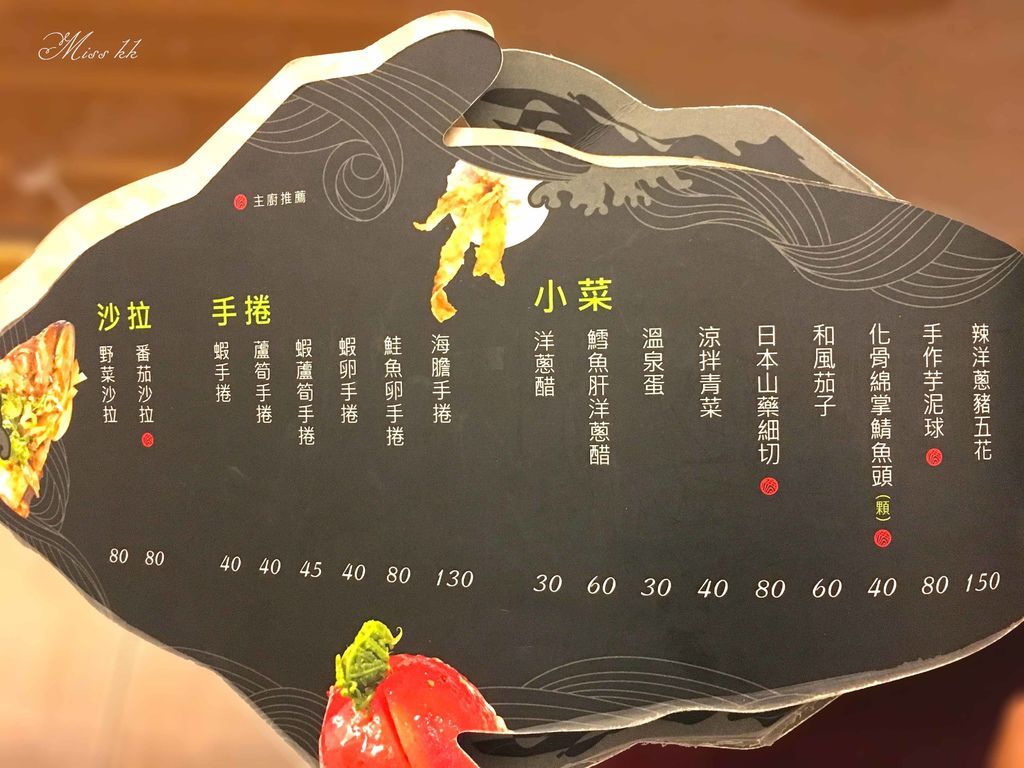 Miss kk
主廚推薦
小菜
辣洋蔥豬五花 150
手作芋泥球 80
化骨綿掌鯖魚頭(顆) 40
和風茄子 60
日本山藥細切 80
涼拌青菜 40
溫泉蛋 30
鱈魚肝洋蔥醋 60
洋蔥醋 30
手捲
海膽手捲 130
鮭魚卵手捲 80
蝦卵手捲 40
蝦蘆筍手捲 45
蘆筍手捲 40
蝦手捲 40
沙拉
番茄沙拉 80
野菜沙拉 80